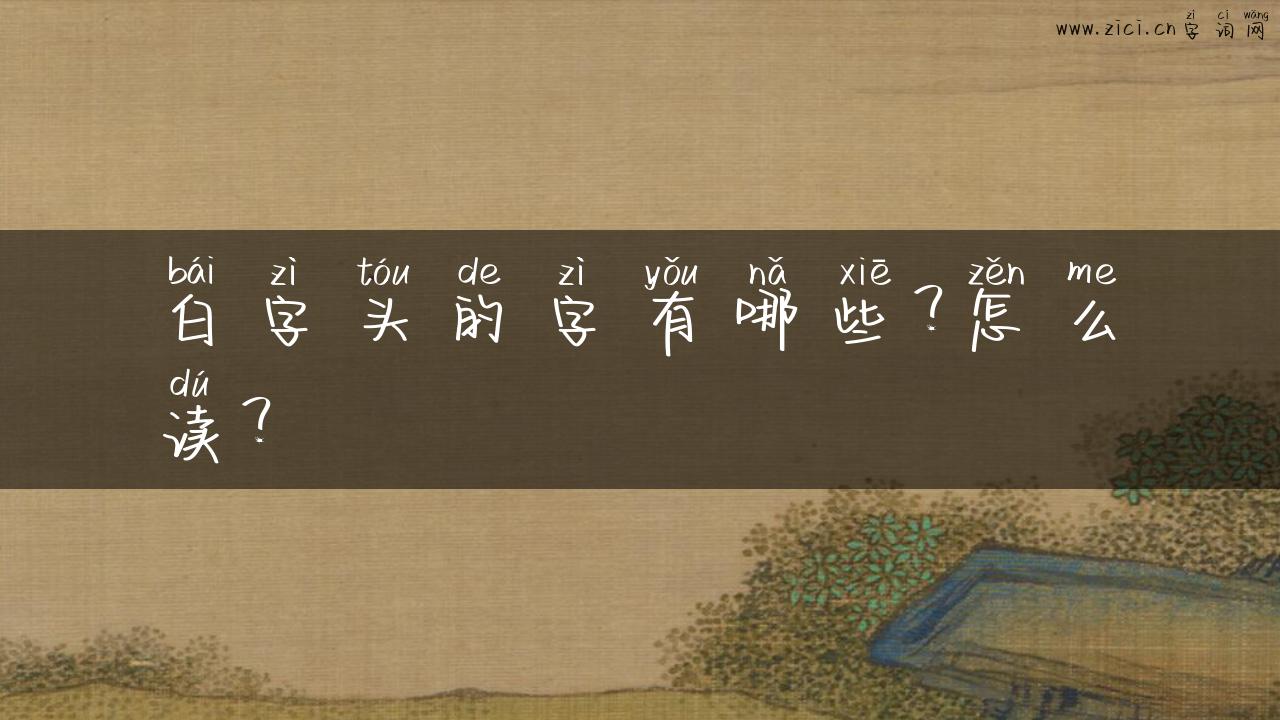 zì cí wǎng
www.zici.cn字词网
bái zì tóu de zì yǒu nǎ xiē zěn me
白字头的字有哪些?怎么
dú
读?